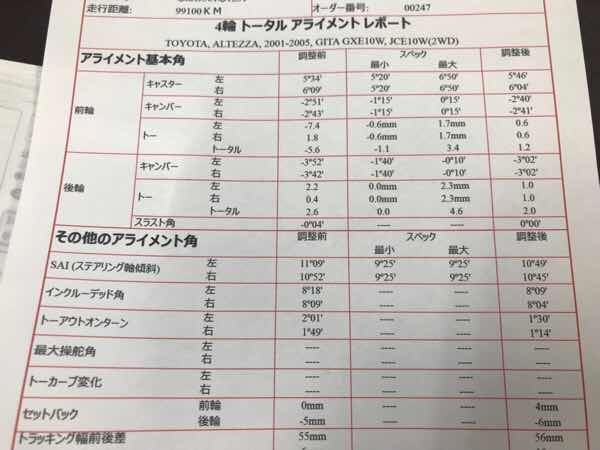 走行距離: 99100ＫＭ オーダー番号: 00247
4輪 トータル アライメント レポート
TOYOTA, ALTEZZA, 2001-2005, GITA GXE10W, JCE10W(2WD)
アライメント基本角 調整前 スペック 調整後
最小 最大
前輪 キャスター 左 5°34' 5°20' 6°50' 5°46'
右 6°09' 5°20' 6°50' 6°04'
キャンバー 左 -2°51' -1°15' 0°15' -2°40'
右 -2°43' -1°15' 0°15' -2°41'
トー 左 -7.4 -0.6mm 1.7mm 0.6
右 1.8 -0.6mm 1.7mm 0.6
トータル -5.6 -1.1 3.4 1.2
後輪 キャンバー 左 -3°52' -1°40' -0°10' -3°02'
右 -3°42' -1°40' -0°10' -3°02'
トー 左 2.2 0.0mm 2.3mm 1.0
右 0.4 0.0mm 2.3mm 1.0
トータル 2.6 0.0 4.6 2.0
スラスト角 -0°04' ---- ---- 0°00'
その他のアライメント角 調整前 スペック 調整後
最小 最大
SAI (ステアリング軸傾斜) 左 11°09' 9°25' 9°25' 10°49'
右 10°52' 9°25' 9°25' 10°45'
インクルーデッド角 左 8°18' ---- ---- 8°09'
右 8°09' ---- ---- 8°04'
トーアウトオンターン 左 2°01' ---- ---- 1°30'
右 1°49' ---- ---- 1°14'
最大操舵角 左 ---- ---- ---- ----
右 ---- ---- ---- ----
トーカーブ変化 左 ---- ---- ---- ----
右 ---- ---- ---- ----
セットバック 前輪 0mm ---- ---- 4mm
後輪 -5mm ---- ---- -6mm
トラッキング幅前後差 55mm 56mm